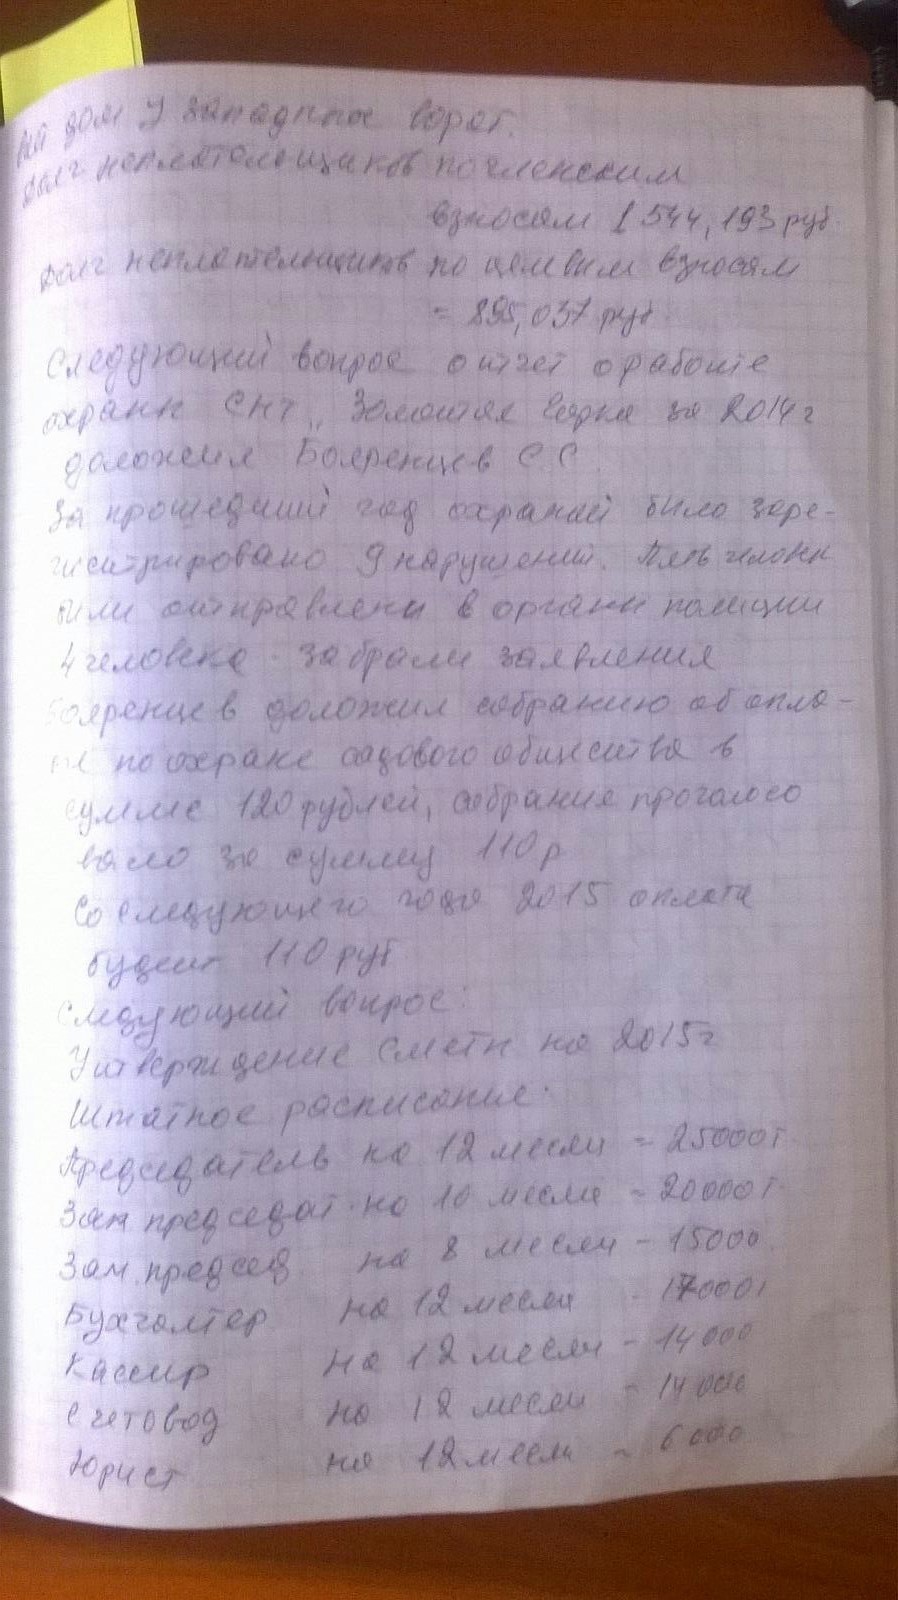 ный дом у западных ворот.
Долг неплательщиков по членским
взносам 1 544,193 руб.
Долг неплательщиков по целевым взносам
= 895,037 руб.
Следующий вопрос отчет о работе
охраны СНТ „Золотая Горка за 2014 г
доложил Бояренцев С С.
За прошедший год охраной было заре-
гистрировано 9 нарушений. Пять человек
были отправлены в органы полиции
4 человека - забрали заявления
Бояренцев доложил собранию об опла-
те по охране садового общества в
сумме 120 рублей, собрание проголосо
вало за сумму 110 р
Со следующего года 2015 оплата
будет 110 руб
Следующий вопрос:
Утверждение сметы на 2015 г
Штатное расписание:
Председатель на 12 месяц = 25000 т.
Зам председат. на 10 месяц = 20000 т.
Зам. председ на 8 месяц - 15000.
Бухгалтер на 12 месяц - 17000 т
Кассир на 12 месяц - 14000
Счетовод на 12 месяц - 14000
Юрист на 12 месяц - 6000